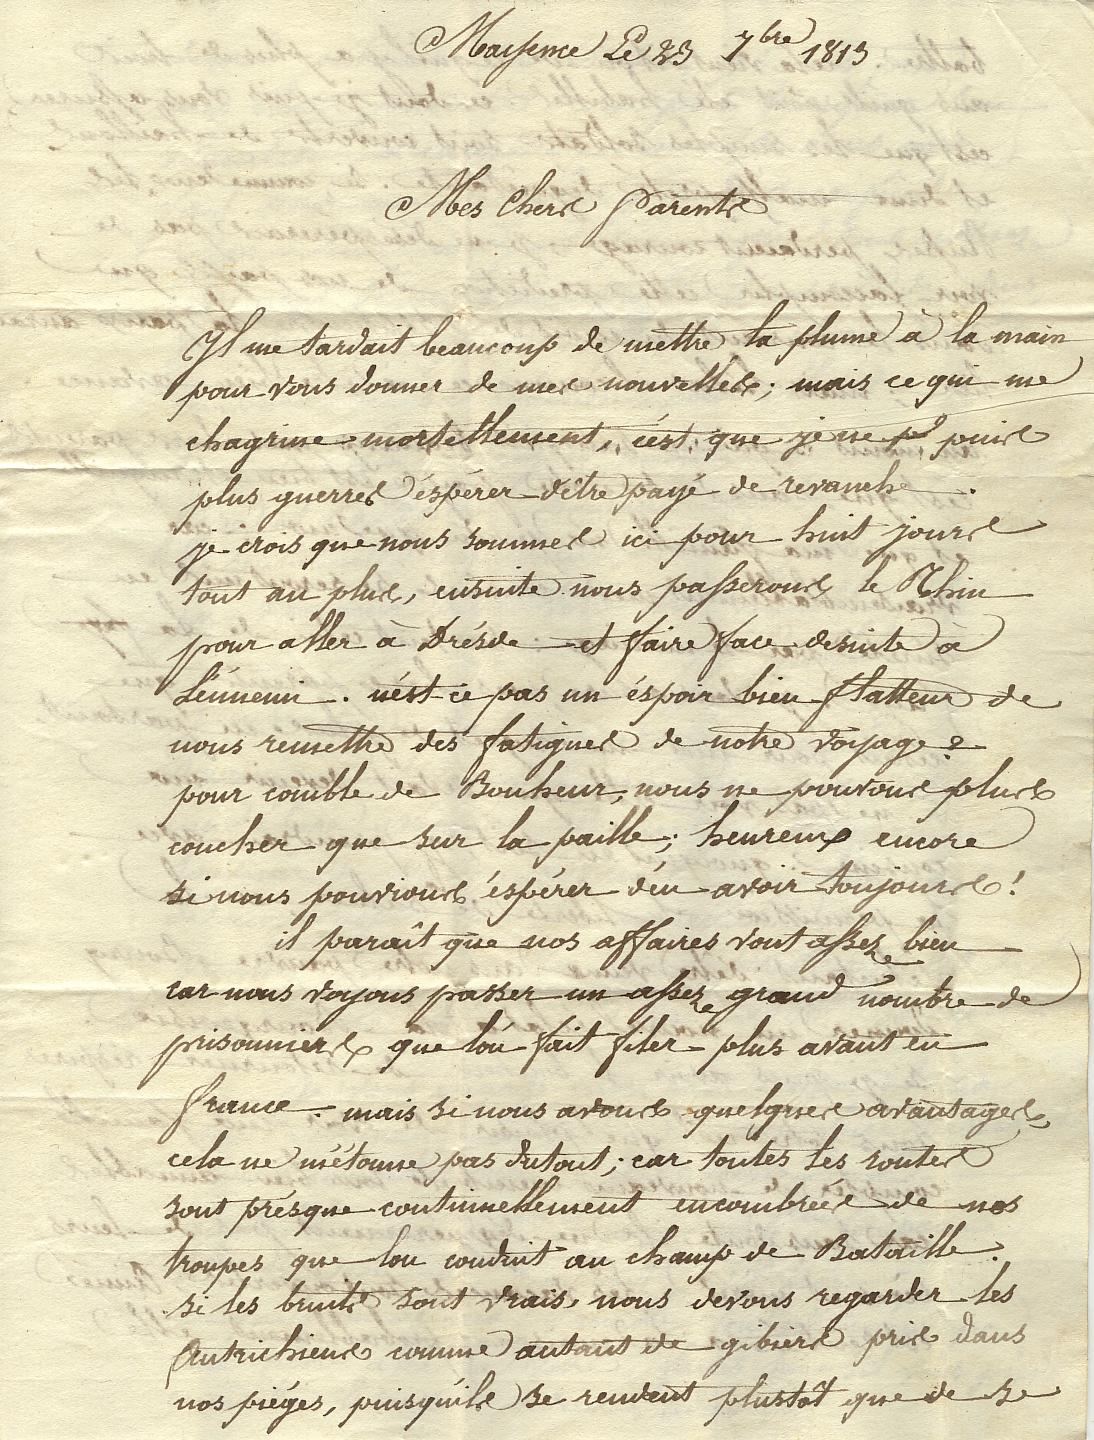 Mayence Le 23 7bre 1813
Mes chers Parents
Il me tardait beaucoup de mettre la plume à la main
pour vous donner de mes nouvelles; mais ce qui me
chagrine mortellement, c'est que je ne puis
plus guerres éspérer d'être payé de revanche.
je crois que nous sommes ici pour huit jours
tout au plus, ensuite nous passerons le Rhin
pour aller à Drésde et faire face desuite à
L'énnemi. n'ést-ce pas un éspoir bien flatteur de
nous remettre des fatigues de notre voyage?
pour comble de Bonheur, nous ne pouvons plus
coucher que sur la paille; heureux encore
si nous pouvions éspérer d'én avoir toujours!
il paraît que nos affaires vont assez bien
car nous voyons passer un assez grand nombre de
prisonniers que l'ón fait filer plus avant en
france. mais si nous avons quelques avantages,
cela ne m'étonne pas dutout; car toutes les routes
sont présque continuellement encombrées de nos
troupes que lon conduit au champ de Bataille.
si les bruits sont vrais, nous devons regarder les
Autrichiens comme autant de gibiers pris dans
nos piéges, puisqu'ils se rendent plustôt que de se